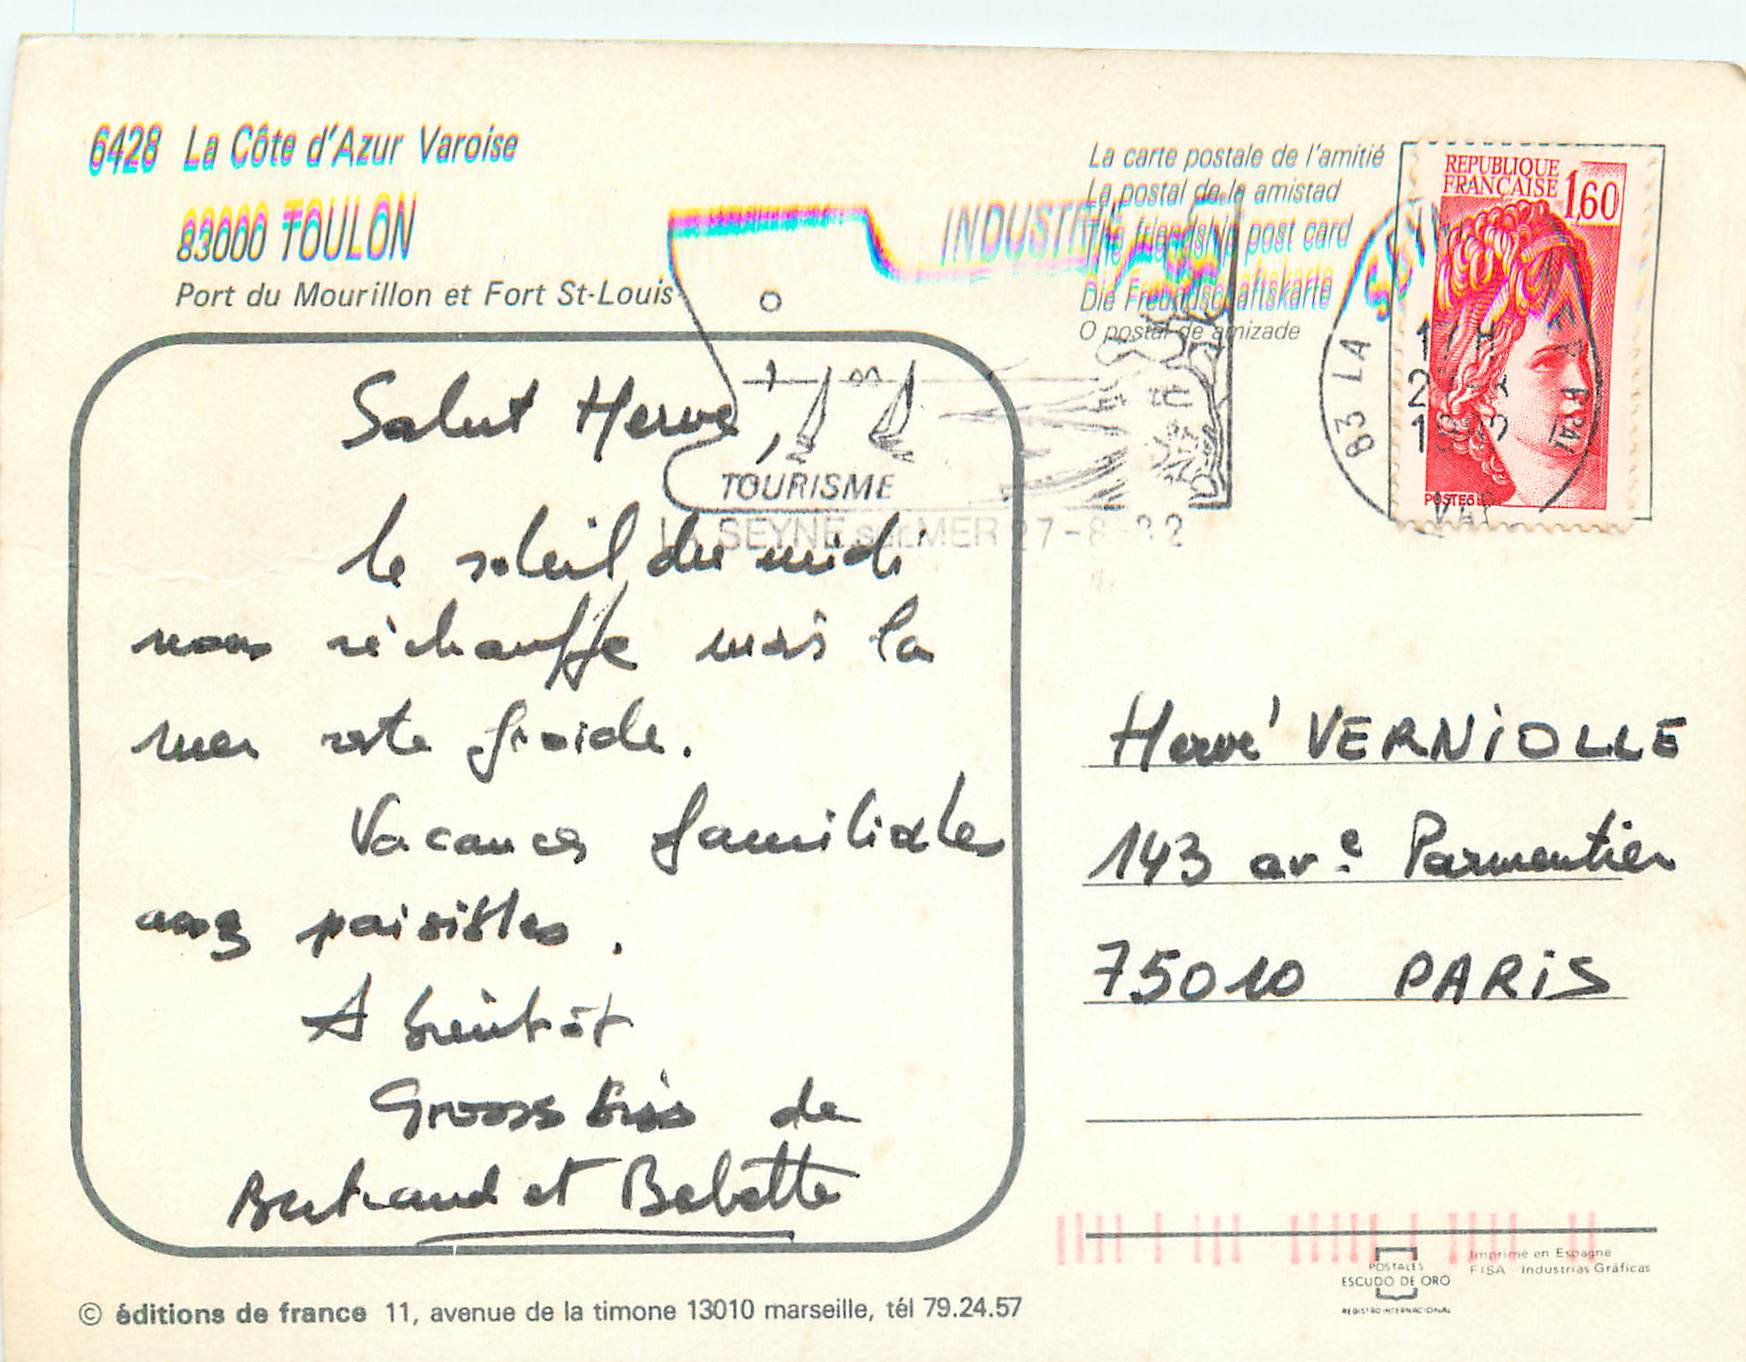 6428 La Côte d'Azur Varoise
83000 TOULON
Port du Mourillon et Fort St-Louis
La carte postale de l'amitié
La postal de la amistad
The friendship post card
Die Freundschaftskarte
O postal de amizade
REPUBLIQUE
FRANÇAISE 1,60
POSTES
83 LA
VAR
TOURISME
LA SEYNE sur MER 27-8-
Salut Hervé,
le soleil du midi
nous réchauffe mais la
mer reste froide.
Vacances familiales
assez paisibles.
A bientôt
Grosss bis de
Bertrand et Babette
Hervé VERNIOLLE
143 av.e Parmentier
75010 PARIS
© éditions de france 11, avenue de la timone 13010 marseille, tél 79.24.57
POSTALES
ESCUDO DE ORO
REGISTRO INTERNACIONAL
Imprimé en Espagne
FISA - Industrias Gráficas